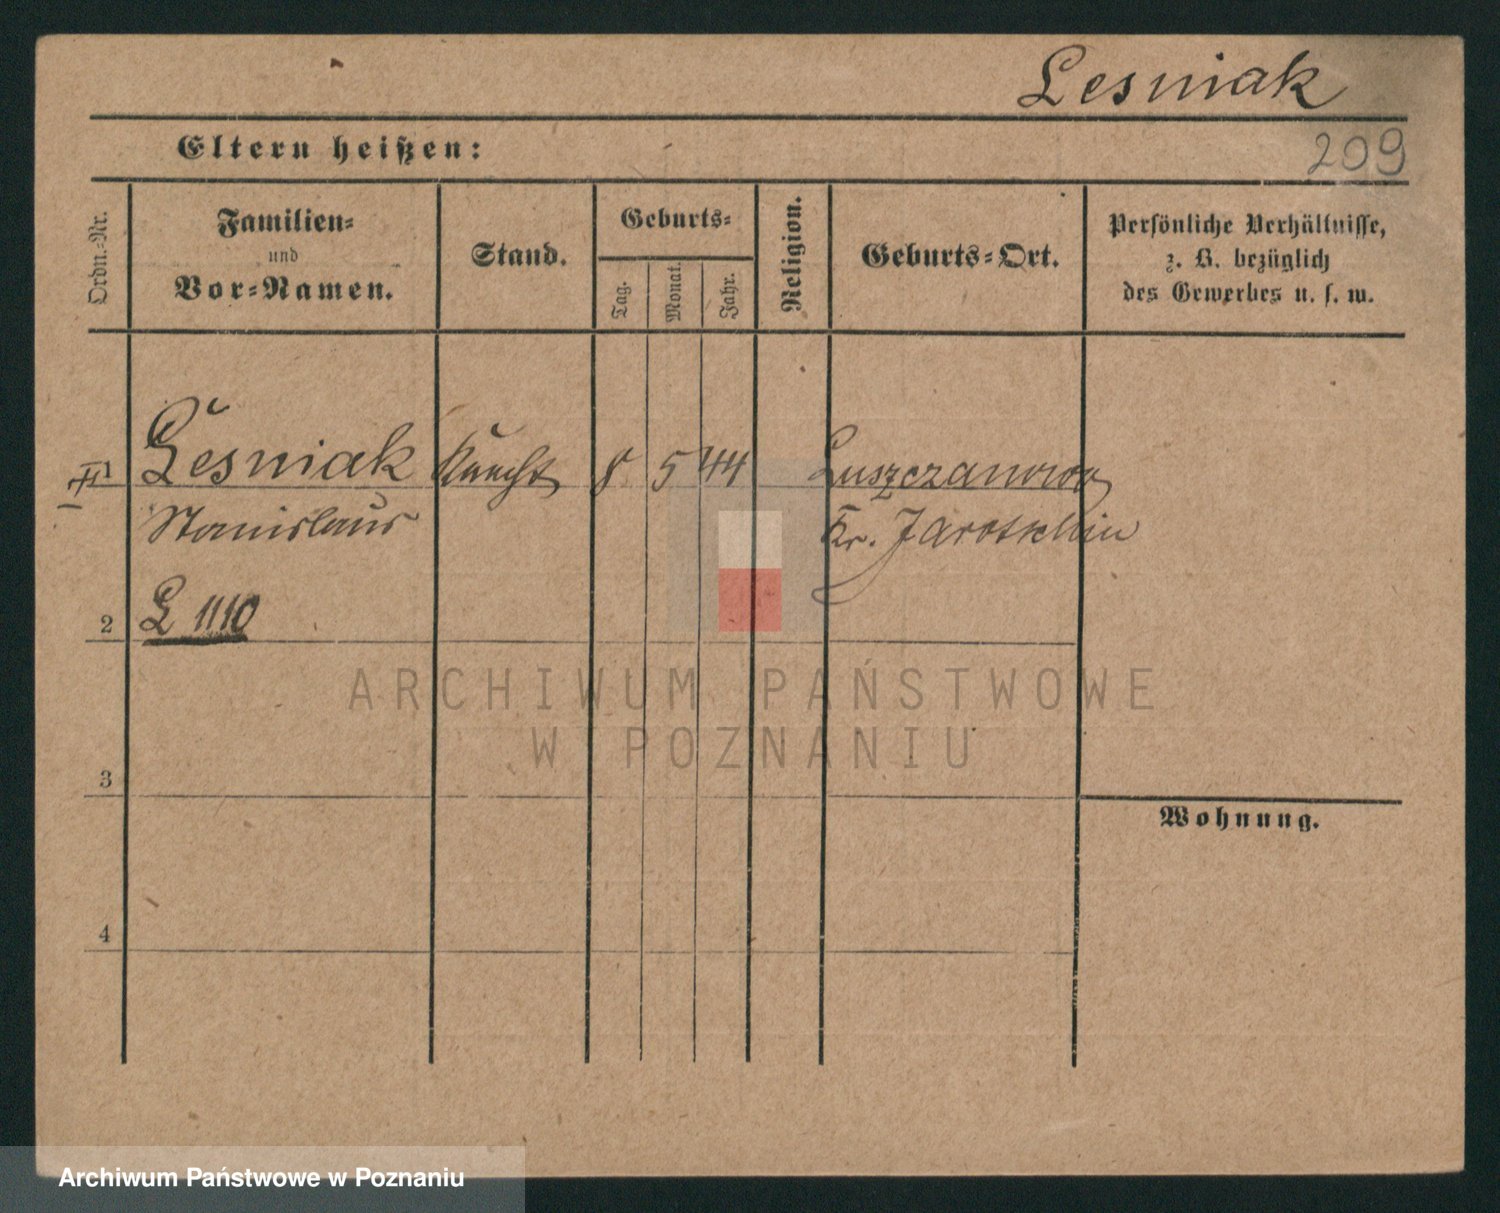 Lesniak
209
Eltern heißen:
Ordn.-Nr.
Familien-
und
Vor-Namen.
Stand.
Geburts-
Tag.
Monat.
Jahr.
Religion.
Geburts-Ort.
Persönliche Verhältnisse,
z. B. bezüglich
des Gewerbes u. s. w.
1 Lesniak Knecht 8 5 44 Luszczanowo
Stanislaus Kr. Jarotschin
L 1110
2
ARCHIWUM PAŃSTWOWE
W POZNANIU
3
Wohnung.
4
Archiwum Państwowe w Poznaniu